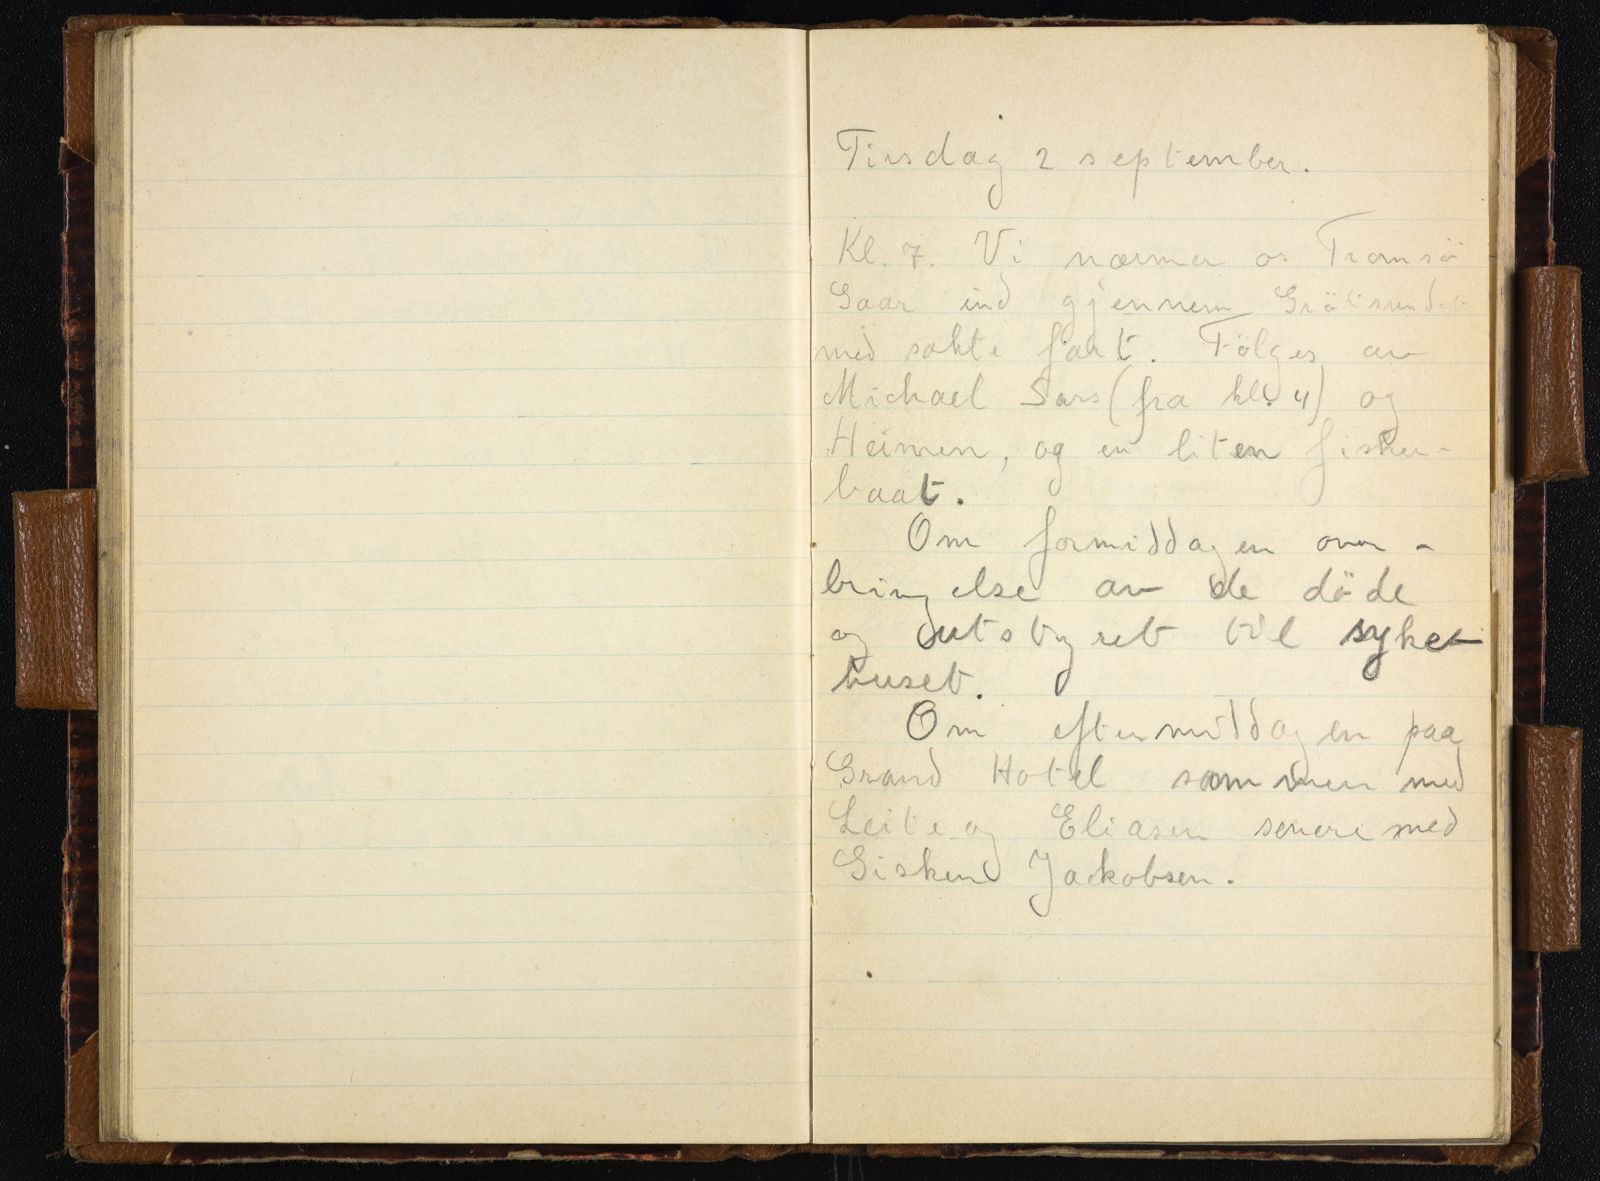 Tirsdag 2 september.
Kl. 7. Vi nærmer os Tromsö
Gaar ind gjennem Grötsundet
med sakte fart. Fölges av
Michael Sars (fra kl. 4) og
Heimen, og en liten fisker-
baat.
Om formiddagen over-
bringelse av de döde
og utstyret til syke-
huset.
Om eftermiddagen paa
Grand Hotel sammen med
Leite og Eliasen senere med
Gisken Jackobsen.